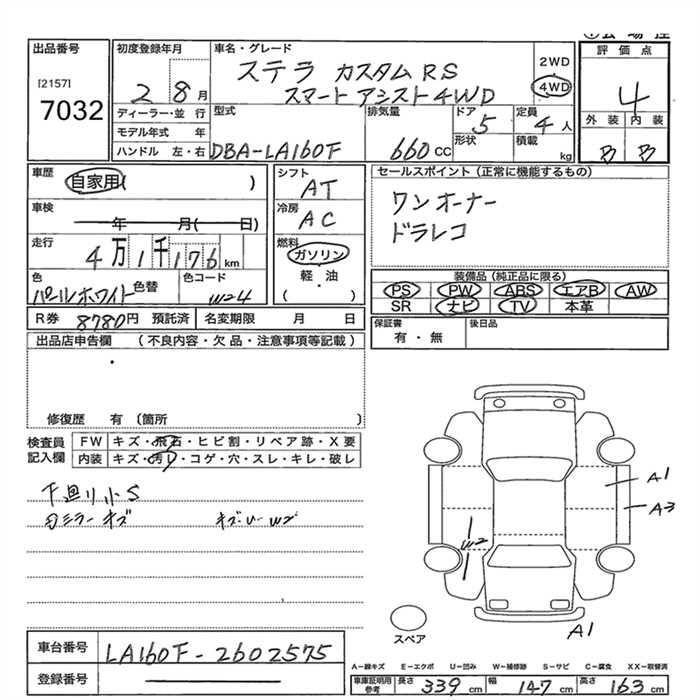 出品番号
[2157]
7032
初度登録年月
2 8月
ディーラー・並行
モデル年式 年
ハンドル 左・右
車名・グレード
ステラ カスタムRS
スマートアシスト4WD
2WD
4WD
型式
DBA-LA160F
排気量
660cc
ドア
5
形状
定員
4人
積載
kg
評価点
4
外装 内装
B B
車歴
自家用( )
車検
年 月( 日)
走行
4万1千176km
色
パールホワイト
色替
色コード
W24
シフト
AT
冷房
AC
燃料
ガソリン
軽・油
( )
セールスポイント(正常に機能するもの)
ワンオーナー
ドラレコ
装備品(純正品に限る)
PS PW ABS エアB AW
SR ナビ TV 本革
R券 8780円 預託済
名変期限 月 日
保証書
有・無
後日品
出品店申告欄 (不良内容・欠品・注意事項等記載)
修復歴 有 〔箇所 〕
検査員
記入欄
FW キズ・飛石・ヒビ割・リペア跡・X要
内装 キズ・汚レ・コゲ・穴・スレ・キレ・破レ
下廻り小S
ミラーキズ
W2
A1
A3
W2
A1
スペア
車台番号
LA160F-2602575
登録番号
A-線キズ E-エクボ U-凹み W-補修跡 S-サビ C-腐食 XX-取替済
車庫証明用
参考
長さ 339cm 幅 147cm 高さ 163cm